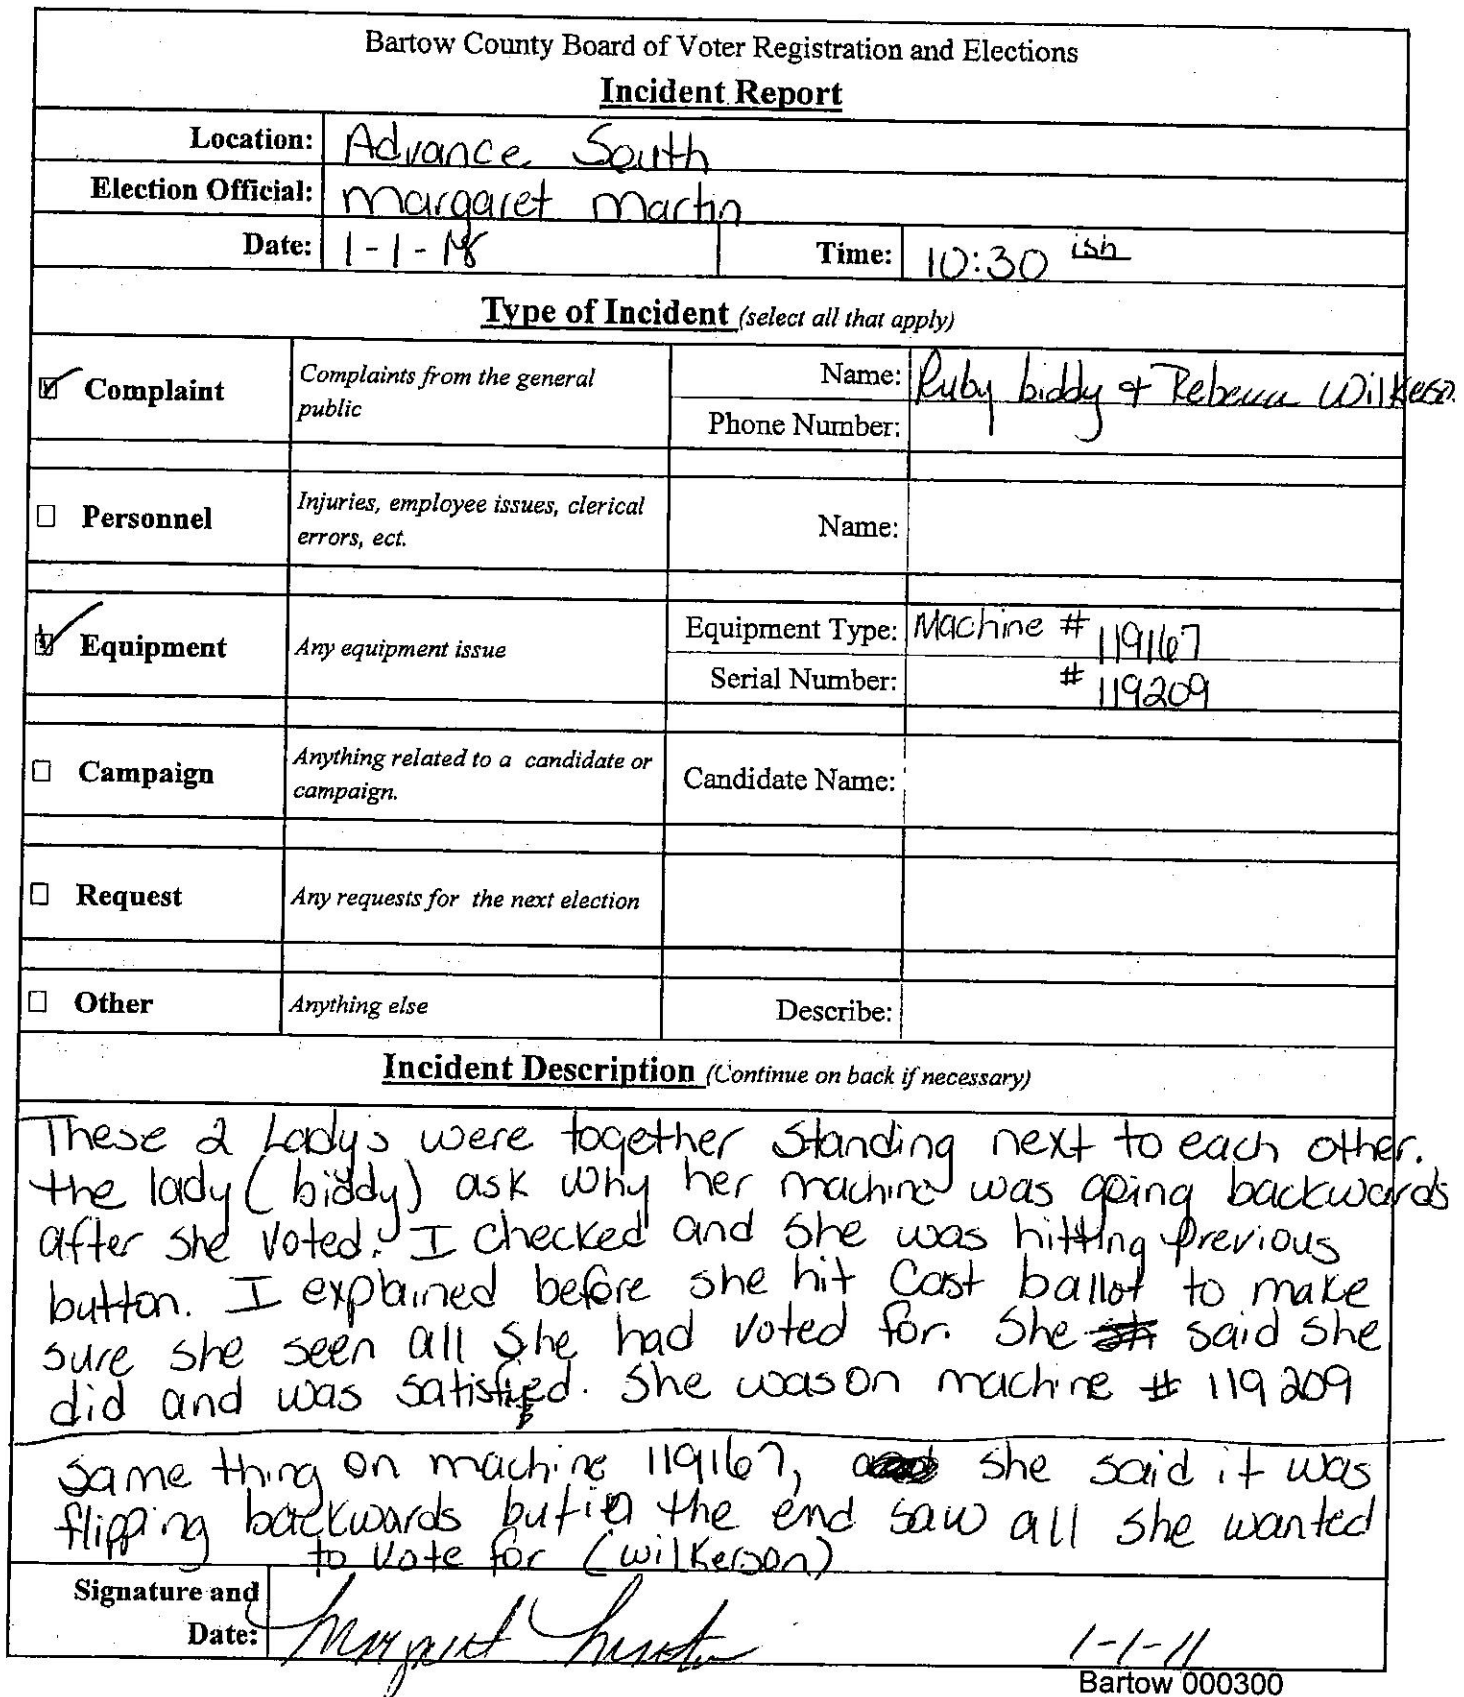 Bartow County Board of Voter Registration and Elections
Incident Report
Location: Advance South
Election Official: Margaret Martin
Date: 1-1-18 Time: 10:30 ish
Type of Incident (select all that apply)
Complaint Complaints from the general public Name: Ruby biddy & Rebecca Wilkerson
Phone Number:
Personnel Injuries, employee issues, clerical errors, ect. Name:
Equipment Any equipment issue Equipment Type: Machine # 119167
Serial Number: # 119209
Campaign Anything related to a candidate or campaign. Candidate Name:
Request Any requests for the next election
Other Anything else Describe:
Incident Description (Continue on back if necessary)
These 2 Lady's were together standing next to each other.
the lady (biddy) ask why her machine was going backwards
after she voted. I checked and she was hitting previous
button. I explained before she hit Cast ballot to make
sure she seen all she had voted for. She said she
did and was satisfied. She was on machine # 119209
Same thing on machine 119167, she said it was
flipping backwards but in the end saw all she wanted
to vote for (wilkerson)
Signature and Date: Margaret Martin 1-1-11
Bartow 000300